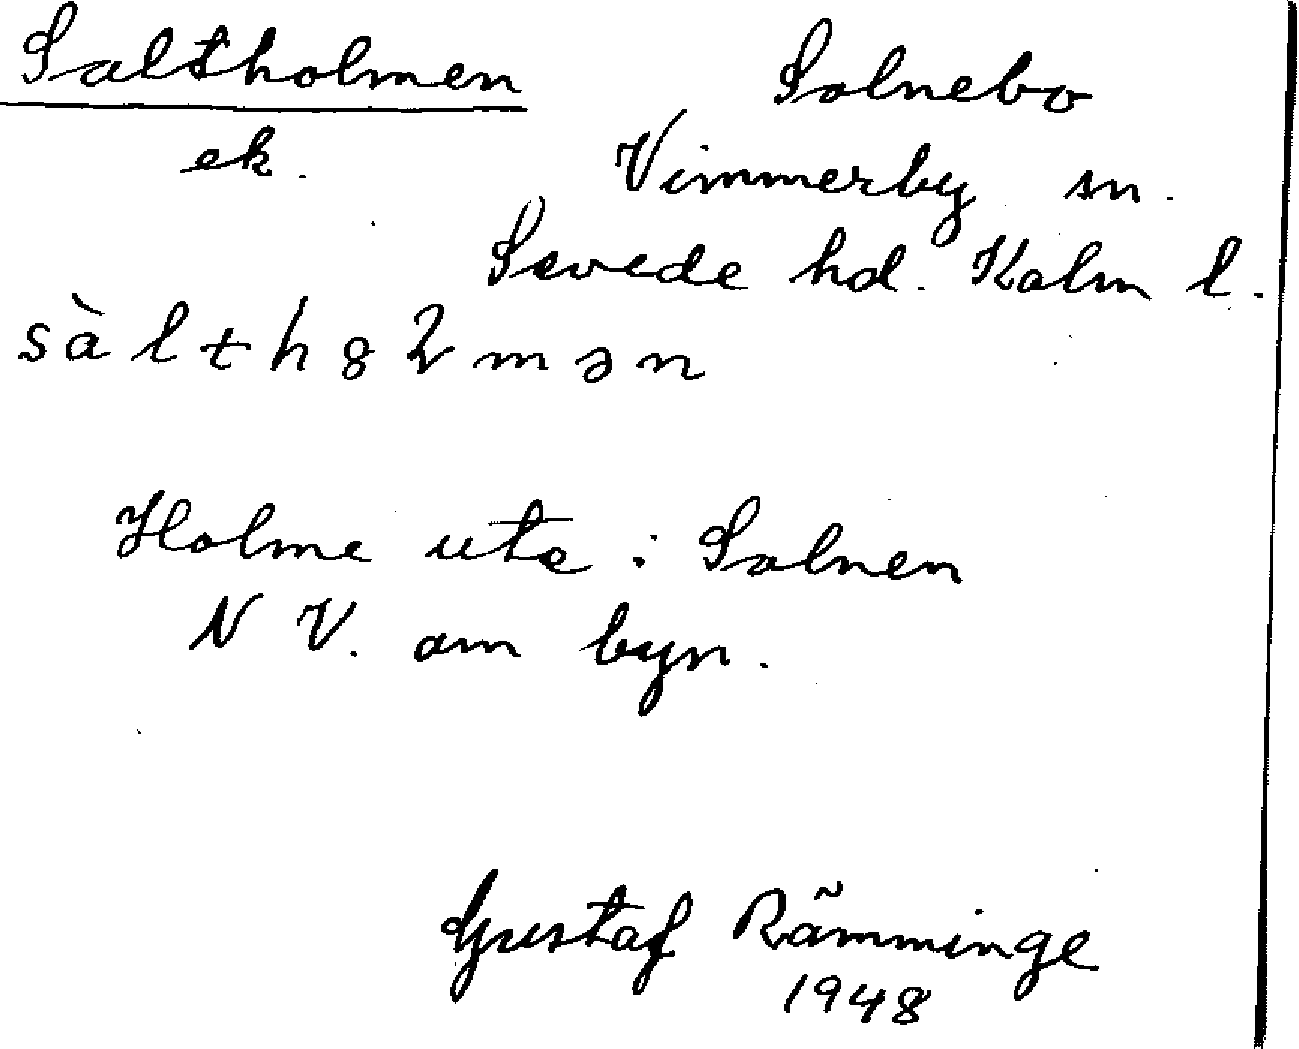 Saltholmen Solnebo
ek. Vimmerby sn.
Sevede hd. Kalm l.
sàlthȣɭmən
Holme ute i Solnen
N V. om byn.
Gustaf Rämminge
1948